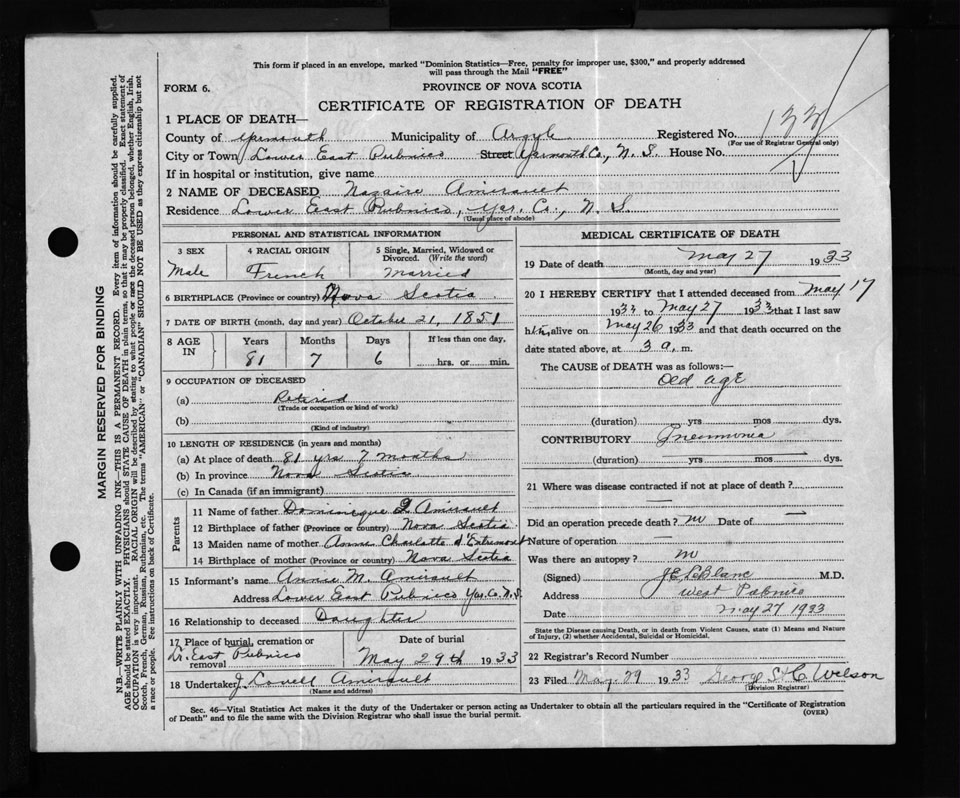 This form if placed in an envelope, marked "Dominion Statistics—Free, penalty for improper use, $300," and properly addressed
will pass through the Mail "FREE"
FORM 6.
PROVINCE OF NOVA SCOTIA
CERTIFICATE OF REGISTRATION OF DEATH
1 PLACE OF DEATH—
County of Yarmouth Municipality of Argyle Registered No. 133
(For use of Registrar General only)
City or Town Lower East Pubnico Street Yarmouth Co., N. S. House No.
If in hospital or institution, give name
2 NAME OF DECEASED Nazaire Amirault
Residence Lower East Pubnico, Yar. Co., N. S.
(Usual place of abode)
PERSONAL AND STATISTICAL INFORMATION
3 SEX 4 RACIAL ORIGIN 5 Single, Married, Widowed or
Divorced. (Write the word)
Male French Married
6 BIRTHPLACE (Province or country) Nova Scotia.
7 DATE OF BIRTH (month, day and year) October 21, 1851
8 AGE IN Years Months Days If less than one day,
81 7 6 hrs. or min.
9 OCCUPATION OF DECEASED
(a) Retired
(Trade or occupation or kind of work)
(b)
(Kind of industry)
10 LENGTH OF RESIDENCE (in years and months)
(a) At place of death 81 yrs 7 months
(b) In province Nova Scotia
(c) In Canada (if an immigrant)
Parents
11 Name of father Dominique Amirault
12 Birthplace of father (Province or country) Nova Scotia
13 Maiden name of mother Anne Charlotte d'Entremont
14 Birthplace of mother (Province or country) Nova Scotia
15 Informant's name Annie M. Amirault
Address Lower East Pubnico Yar. Co. N. S.
16 Relationship to deceased Daughter
17 Place of burial, cremation or
removal Lr. East Pubnico
Date of burial
May 29th 1933
18 Undertaker J. Lovell Amirault
(Name and address)
MEDICAL CERTIFICATE OF DEATH
19 Date of death May 27 1933
(Month, day and year)
20 I HEREBY CERTIFY that I attended deceased from May 17
1933 to May 27 1933 that I last saw
him alive on May 26 1933 and that death occurred on
date stated above, at 3 a. m.
The CAUSE of DEATH was as follows:—
Old age
(duration) yrs mos dys.
CONTRIBUTORY Pneumonia
(duration) yrs mos dys.
21 Where was disease contracted if not at place of death? —
Did an operation precede death? no Date of —
Nature of operation —
Was there an autopsy? no
(Signed) J E LeBlanc M.D.
Address West Pubnico
Date May 27 1933
State the Disease causing Death, or in death from Violent Causes, state (1) Means and Nature
of Injury, (2) whether Accidental, Suicidal or Homicidal.
22 Registrar's Record Number
23 Filed May 29 1933 George S. H. C. Wilson
(Division Registrar)
Sec. 46—Vital Statistics Act makes it duty of the Undertaker or person acting as Undertaker to obtain all the particulars required in the "Certificate of Registration
of Death" and to file the same with the Division Registrar who shall issue the burial permit.
(OVER)
MARGIN RESERVED FOR BINDING
N.B.—WRITE PLAINLY WITH UNFADING INK—THIS IS A PERMANENT RECORD. Every item of information should be carefully supplied.
AGE should be stated EXACTLY. PHYSICIANS should STATE CAUSE OF DEATH in plain terms, so that it may be properly classified. Exact statement of
OCCUPATION is very important. RACIAL ORIGIN will be described by stating to what people or race the deceased person belonged, whether English, Irish,
Scotch, French, German, Russian, Ruthenian, etc. The terms "AMERICAN" or "CANADIAN" SHOULD NOT BE USED as they express citizenship but not
a race or people. See instructions on back of Certificate.